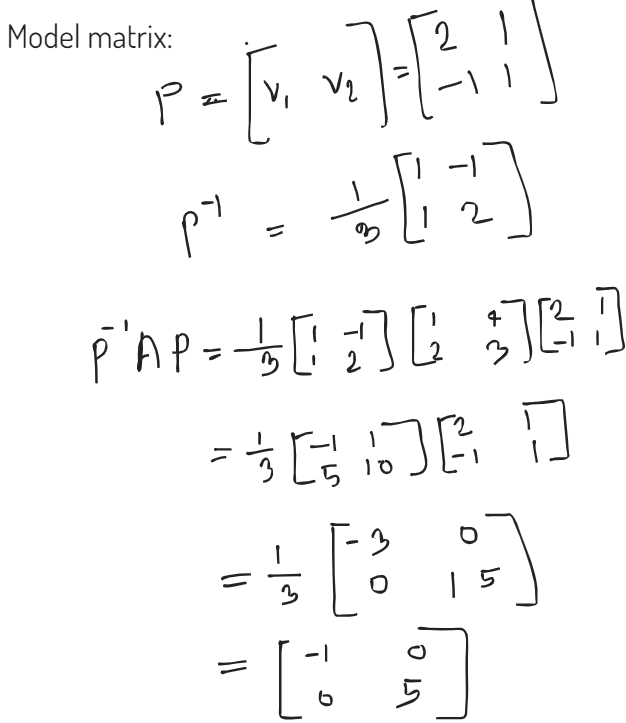 Model matrix:
P = [v₁ v₂] = [2 1; -1 1]
P⁻¹ = 1/3 [1 -1; 1 2]
P⁻¹AP = 1/3 [1 -1; 1 2] [1 4; 2 3] [2 1; -1 1]
= 1/3 [-1 1; 5 10] [2 1; -1 1]
= 1/3 [-3 0; 0 15]
= [-1 0; 0 5]